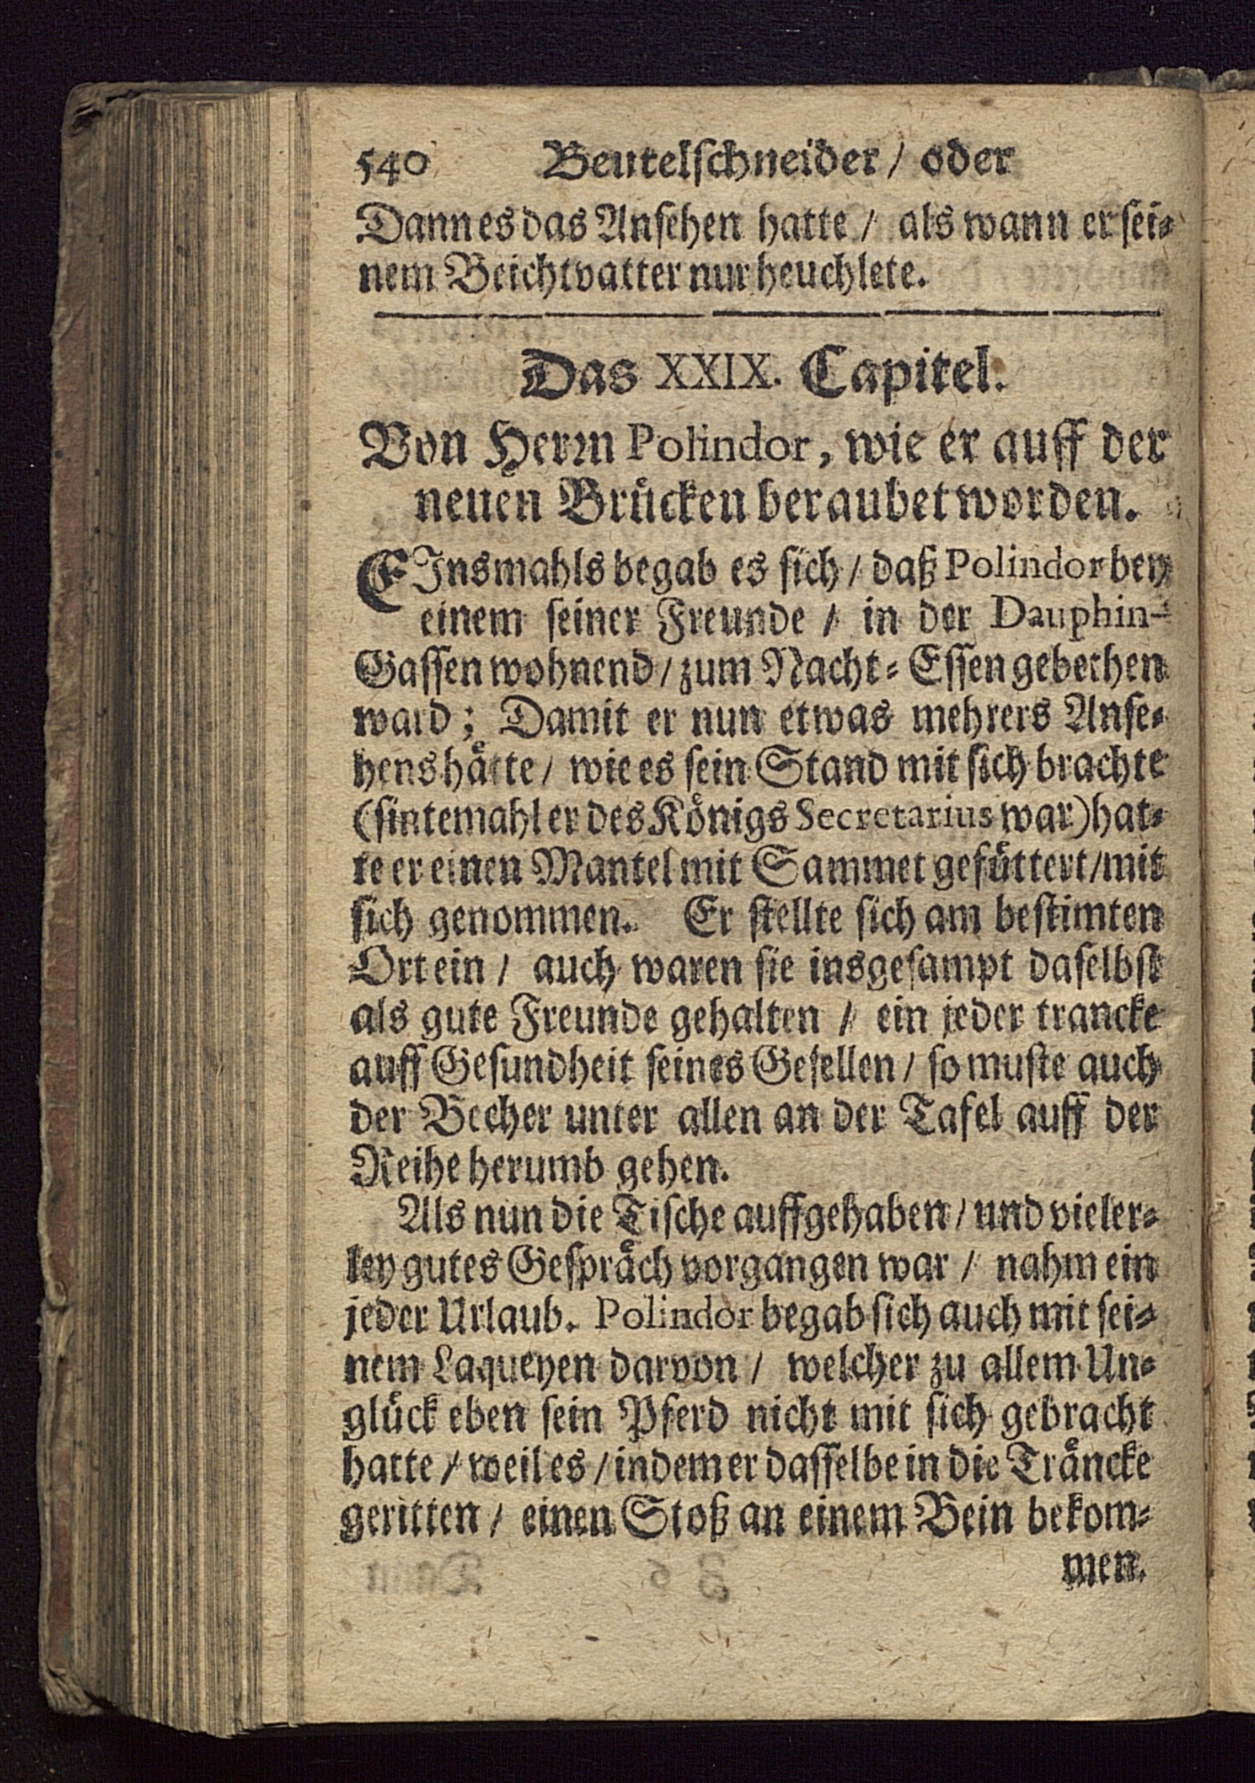 540 Beutelschneider / oder
Dann es das Ansehen hatte / als wann er sei-
nem Beichtvatter nur heuchlete.
Das XXIX. Capitel.
Von Herrn Polindor, wie er auff der
neuen Brücken beraubet worden.
EInsmahls begab es sich / daß Polindor bey
einem seiner Freunde / in der Dauphin-
Gassen wohnend / zum Nacht-Essen gebethen
ward; Damit er nun etwas mehrers Anse-
hens hätte / wie es sein Stand mit sich brachte
(sintemahl er des Königs Secretarius war) hat-
te er einen Mantel mit Sammet gefüttert / mit
sich genommen. Er stellte sich am bestimten
Ort ein / auch waren sie insgesampt daselbst
als gute Freunde gehalten / ein jeder trancke
auff Gesundheit seines Gesellen / so muste auch
der Becher unter allen an der Tafel auff der
Reihe herumb gehen.
Als nun die Tische auffgehaben / und vieler-
ley gutes Gespräch vorgangen war / nahm ein
jeder Urlaub. Polindor begab sich auch mit sei-
nem Laqueyen darvon / welcher zu allem Un-
glück eben sein Pferd nicht mit sich gebracht
hatte / weil es / indem er dasselbe in die Träncke
geritten / einen Stoß an einem Bein bekom-
men.